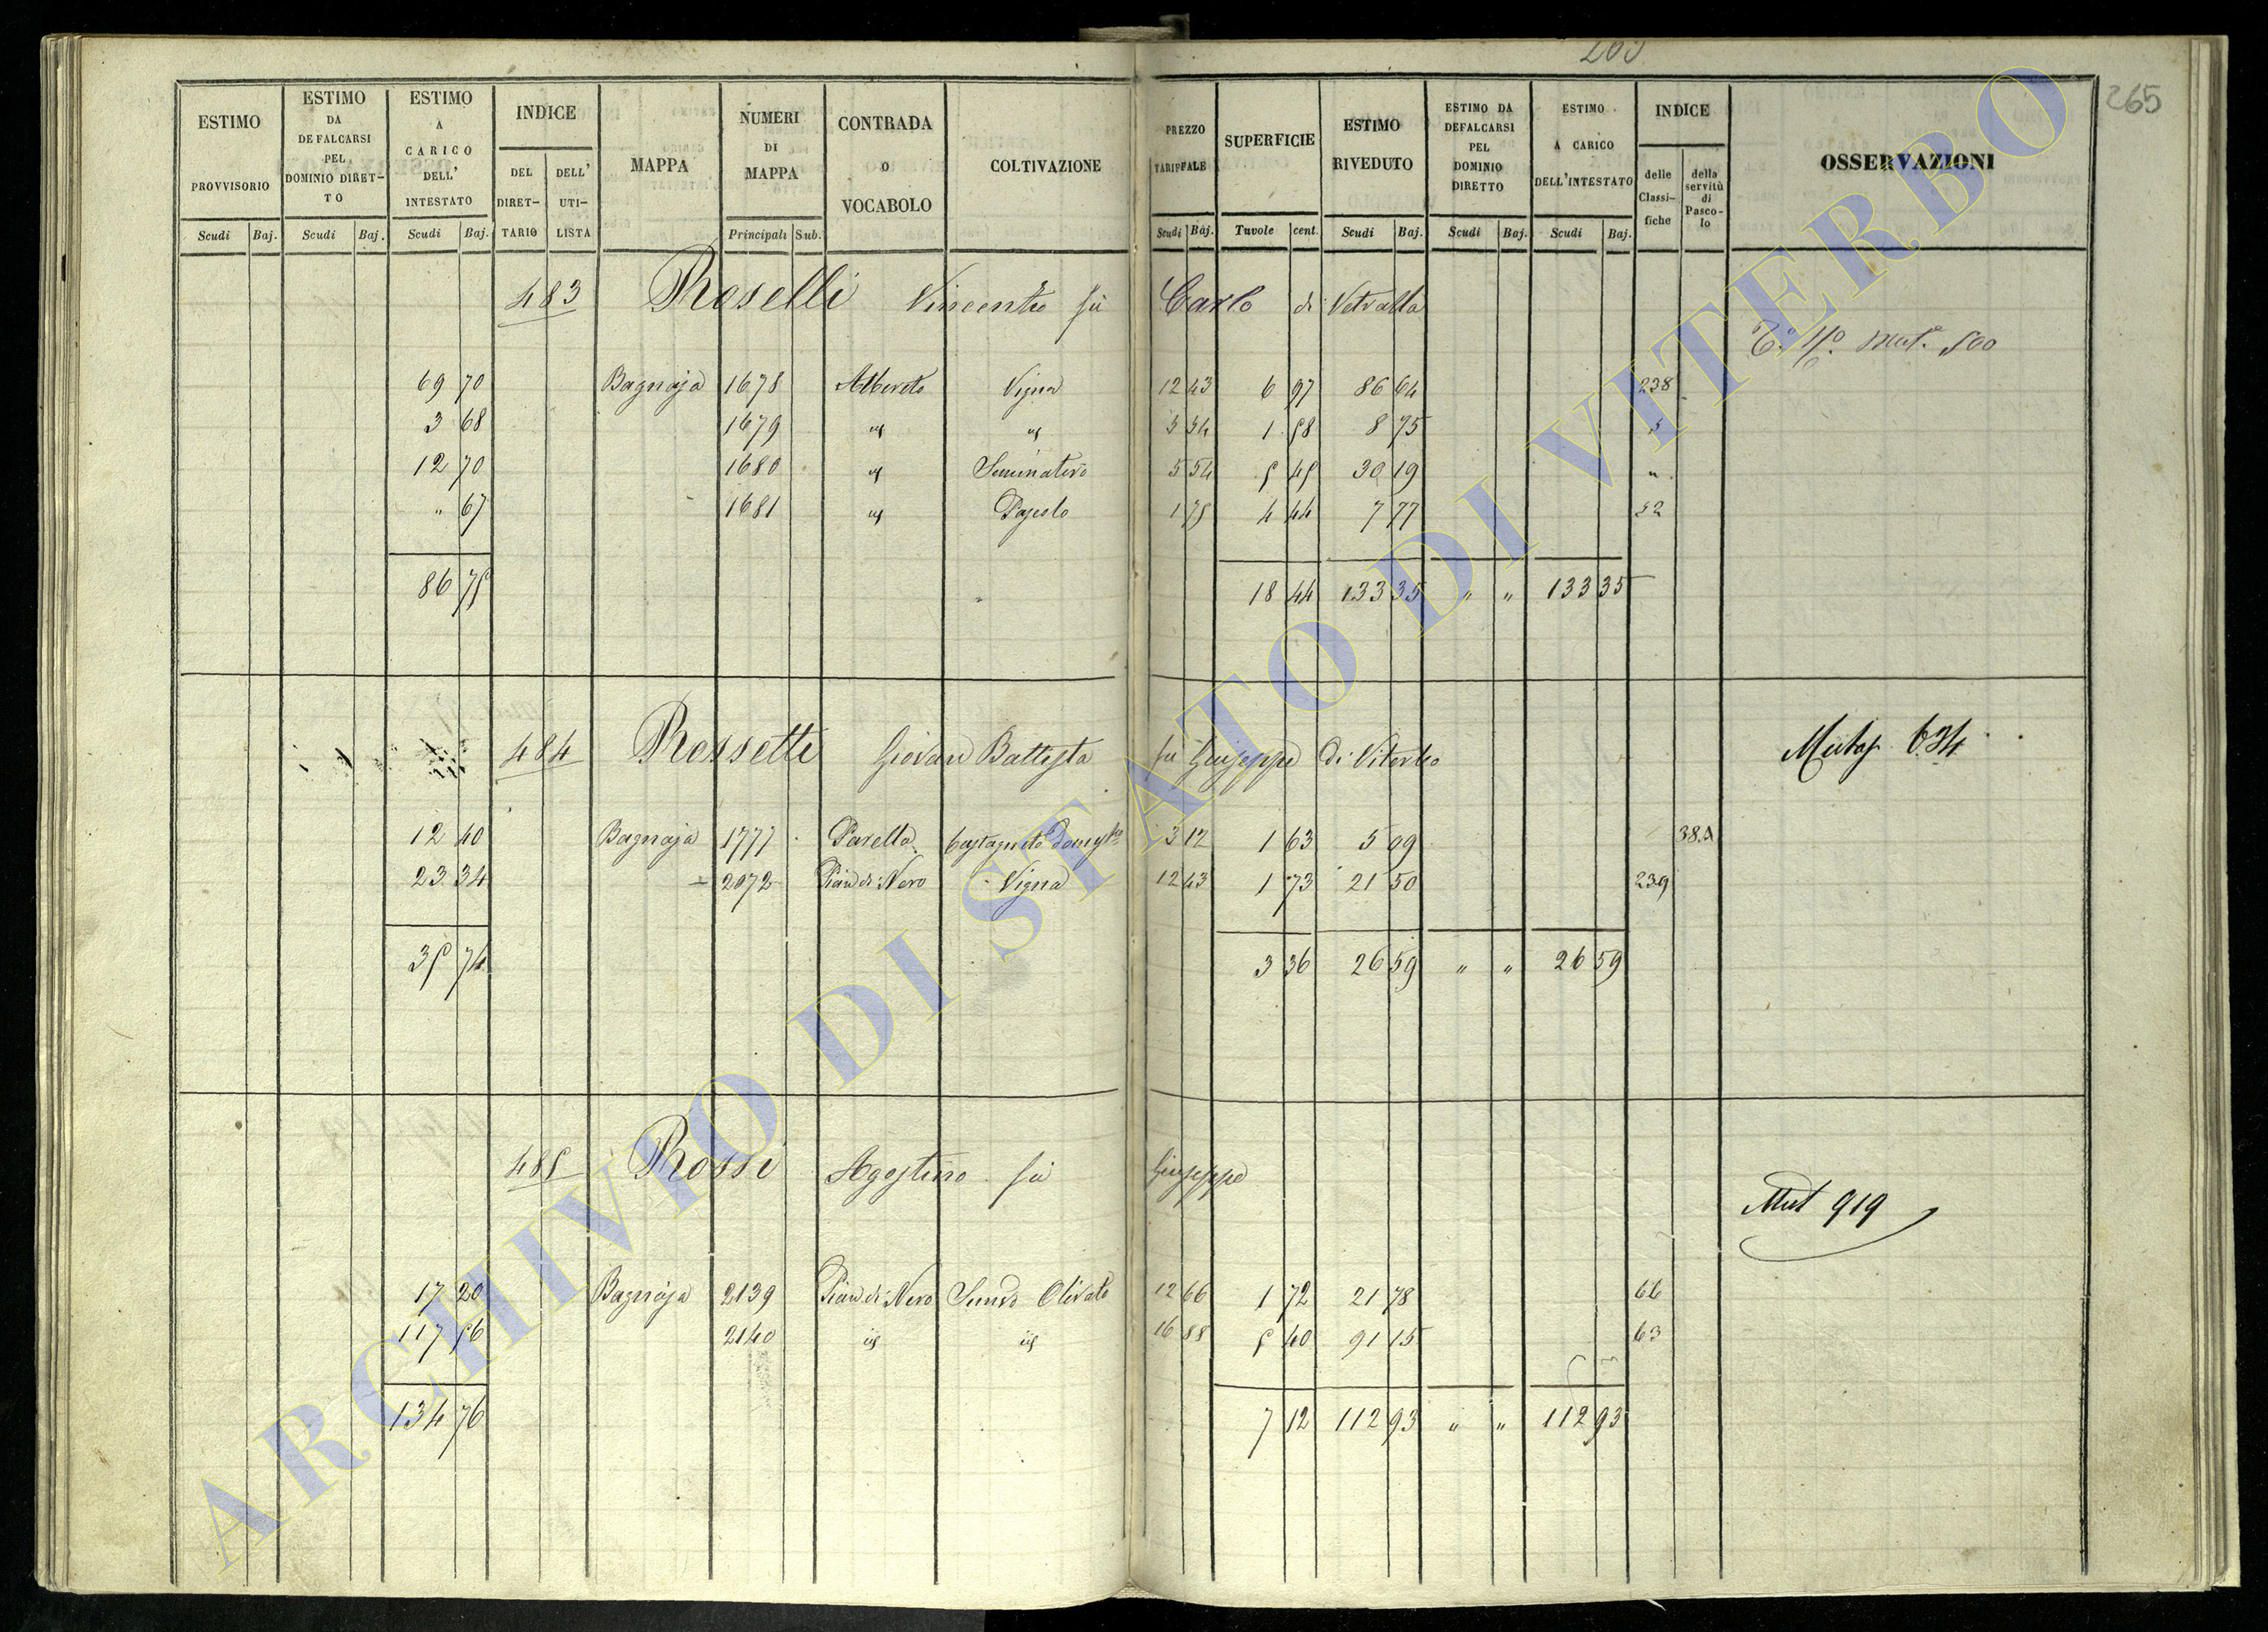 265
ESTIMO PROVVISORIO | ESTIMO DA DEFALCARSI PEL DOMINIO DIRETTO | ESTIMO A CARICO DELL' INTESTATO | INDICE DEL DIRETTARIO | DELL' UTILISTA | MAPPA | NUMERI DI MAPPA | CONTRADA O VOCABOLO | COLTIVAZIONE | PREZZO TARIFFALE | SUPERFICIE | ESTIMO RIVEDUTO | ESTIMO DA DEFALCARSI PEL DOMINIO DIRETTO | ESTIMO A CARICO DELL'INTESTATO | INDICE delle Classifiche | della servitù di Pascolo | OSSERVAZIONI
Scudi Baj. Scudi Baj. Scudi Baj. Principali Sub. Scudi Baj. Tavole cent. Scudi Baj. Scudi Baj. Scudi Baj.
483 Roselli Vincenzo fù Carlo di Vetralla
Mut. 500
69 70 Bagnaja 1678 Albereto Vigna 12 43 6 97 86 64 238
3 68 1679 " " 5 54 1 58 8 75
12 70 1680 " Seminativo 5 54 5 45 30 19 "
" 67 1681 " Pascolo 1 75 4 44 7 77 52
86 75 18 44 133 35 " " 133 35
484 Rossetti Giovan Battista fù Giuseppe di Viterbo Mutaz. 634
12 40 Bagnaja 1777 Parella Castagneto Domestº 3 12 1 63 5 09 38.A
23 34 2072 Pian di Nero Vigna 12 43 1 73 21 50 239
35 74 3 36 26 59 " " 26 59
485 Rossi Agostino fù Giuseppe
Mut 919
17 20 Bagnaja 2139 Pian di Nero Semvo Olivato 12 66 1 72 21 78 66
117 56 2140 " " 16 88 5 40 91 15 63
134 76 7 12 112 93 " " 112 93
ARCHIVIO DI STATO DI VITERBO